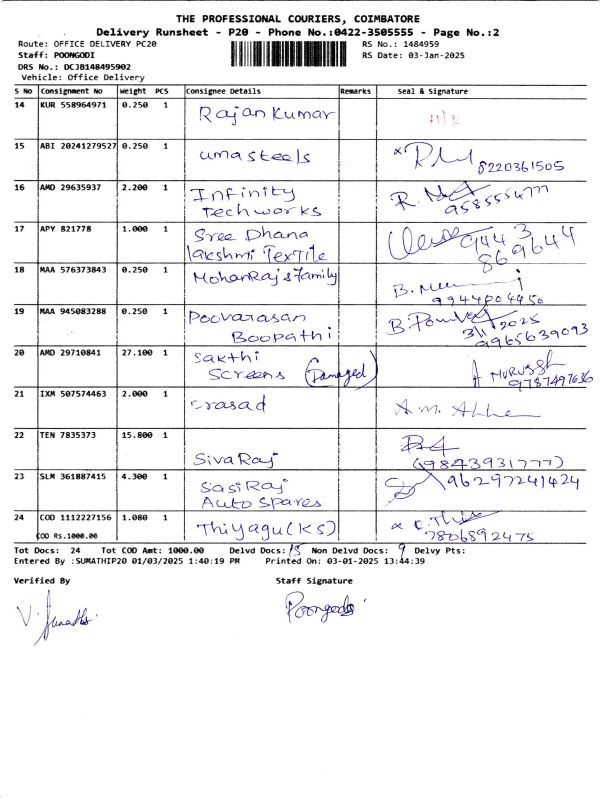 THE PROFESSIONAL COURIERS, COIMBATORE
Delivery Runsheet - P20 - Phone No.:0422-3505555 - Page No.:2
Route: OFFICE DELIVERY PC20 RS No.: 1484959
Staff: POONGODI RS Date: 03-Jan-2025
DRS No.: DCJB148495902
Vehicle: Office Delivery
S No Consignment No Weight PCS Consignee Details Remarks Seal & Signature
14 KUR 558964971 0.250 1 Rajan Kumar
15 ABI 20241279527 0.250 1 uma steels 8220361505
16 AMD 29635937 2.200 1 Infinity
Techworks 9585554777
17 APY 821778 1.000 1 Sree Dhana 9443
lakshmi TexTile 869644
18 MAA 576373843 0.250 1 MohanRaj's Family
9944004450
19 MAA 945083288 0.250 1 Poovarasan 3/1/2025
Boopathi 9965639093
20 AMD 29710841 27.100 1 Sakthi
Screens (Damaged) 9787497636
21 IXM 507574463 2.000 1 Prasad
22 TEN 7835373 15.800 1
SivaRaj (9843931777)
23 SLM 361887415 4.300 1 SasiRaj 96297241424
Auto Spares
24 COD 1112227156 1.080 1 Thiyagu (KS)
COD Rs.1000.00 7806892475
Tot Docs: 24 Tot COD Amt: 1000.00 Delvd Docs: 15 Non Delvd Docs: 9 Delvy Pts:
Entered By :SUMATHIP20 01/03/2025 1:40:19 PM Printed On: 03-01-2025 13:44:39
Verified By Staff Signature
Poongodi